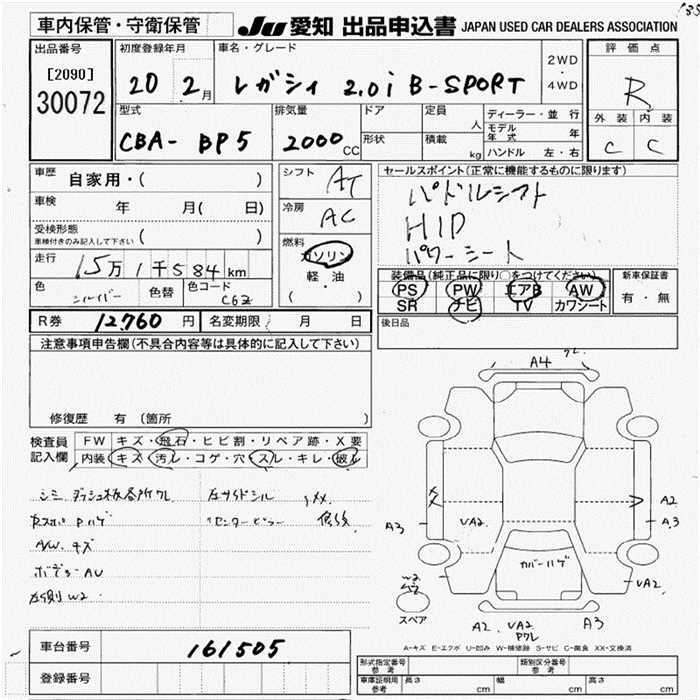 車内保管・守衛保管 JU 愛知 出品申込書 JAPAN USED CAR DEALERS ASSOCIATION
出品番号 初度登録年月 車名・グレード 2WD・4WD 評価点
[2090]
30072
20 2月 レガシィ 2.0i B-SPORT R
型式 排気量 ドア 定員 人 ディーラー・並行 外装 内装
CBA- BP5 2000cc 形状 積載 kg モデル年式 年 C C
ハンドル 左・右
車歴 自家用・( ) シフト AT セールスポイント(正常に機能するものに限ります)
車検 年 月( 日) 冷房 AC パドルシフト
受検形態 HID
車検付きのみ記入して下さい 燃料 ガソリン パワーシート
走行 15万1千584km 軽・油 装備品(純正品に限り○をつけてください) 新車保証書
色 シルバー 色替 色コード C6Z ( ) PS PW エアB AW 有・無
SR ナビ TV カワシート
R券 12,760円 名変期限 月 日 後日品
注意事項申告欄(不具合内容等は具体的に記入して下さい)
修復歴 有 (箇所 )
検査員 FW キズ・飛石・ヒビ割・リペア跡・X要
記入欄 内装 キズ・汚レ・コゲ・穴・スレ・キレ・破レ
シミ ダッシュ板各所ワレ 左サイドシル XX
Pハゲ センターピラー 修後
A/W キズ
ボデー AU
左側 W2
A4 ワレ
A3 VA2 A2
A3
カバーハゲ VA2
W2
スペア
A2 VA2 A3
Pワレ
A-キズ E-エクボ U-凹み W-補修跡 S-サビ C-腐食 XX-交換済
車台番号 161505
登録番号
形式指定番号 参考 類別区分番号 参考
車庫証明用 参考 長さ cm 幅 cm 高さ cm